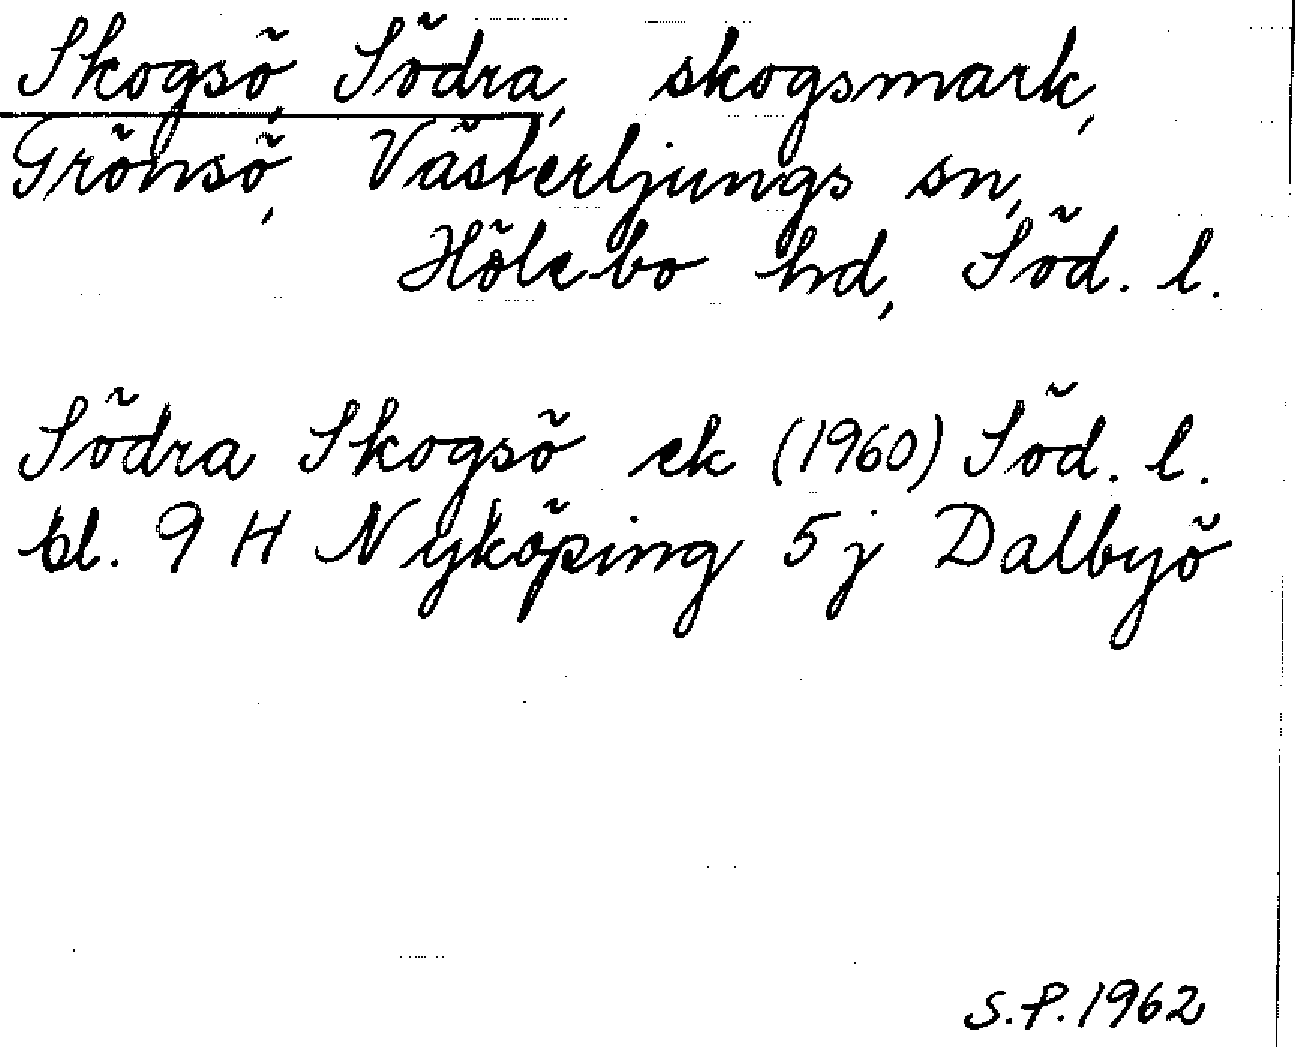 Skogsö, Södra, skogsmark,
Grönsö, Västerljungs sn,
Hölebo hd, Söd. l.
Södra Skogsö ek (1960) Söd. l.
bl. 9 H Nyköping 5 j Dalbyö
S.P. 1962